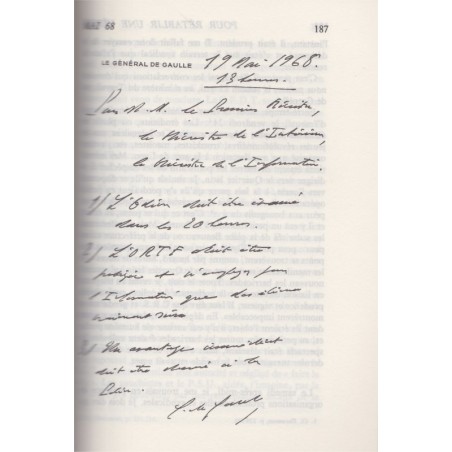 187
LE GÉNÉRAL DE GAULLE 19 Mai 1968.
13 heures.
Pour M.M. le Premier Ministre,
le Ministre de l'Intérieur,
le Ministre de l'Information.
1) L'Odéon doit être évacué
dans les 20 heures.
2) L'ORTF doit être
protégée et n'employer pour
l'Information que des éléments
vraiment sûrs
3) Un avantage immédiat
doit être donné à la
Police.
C. de Gaulle